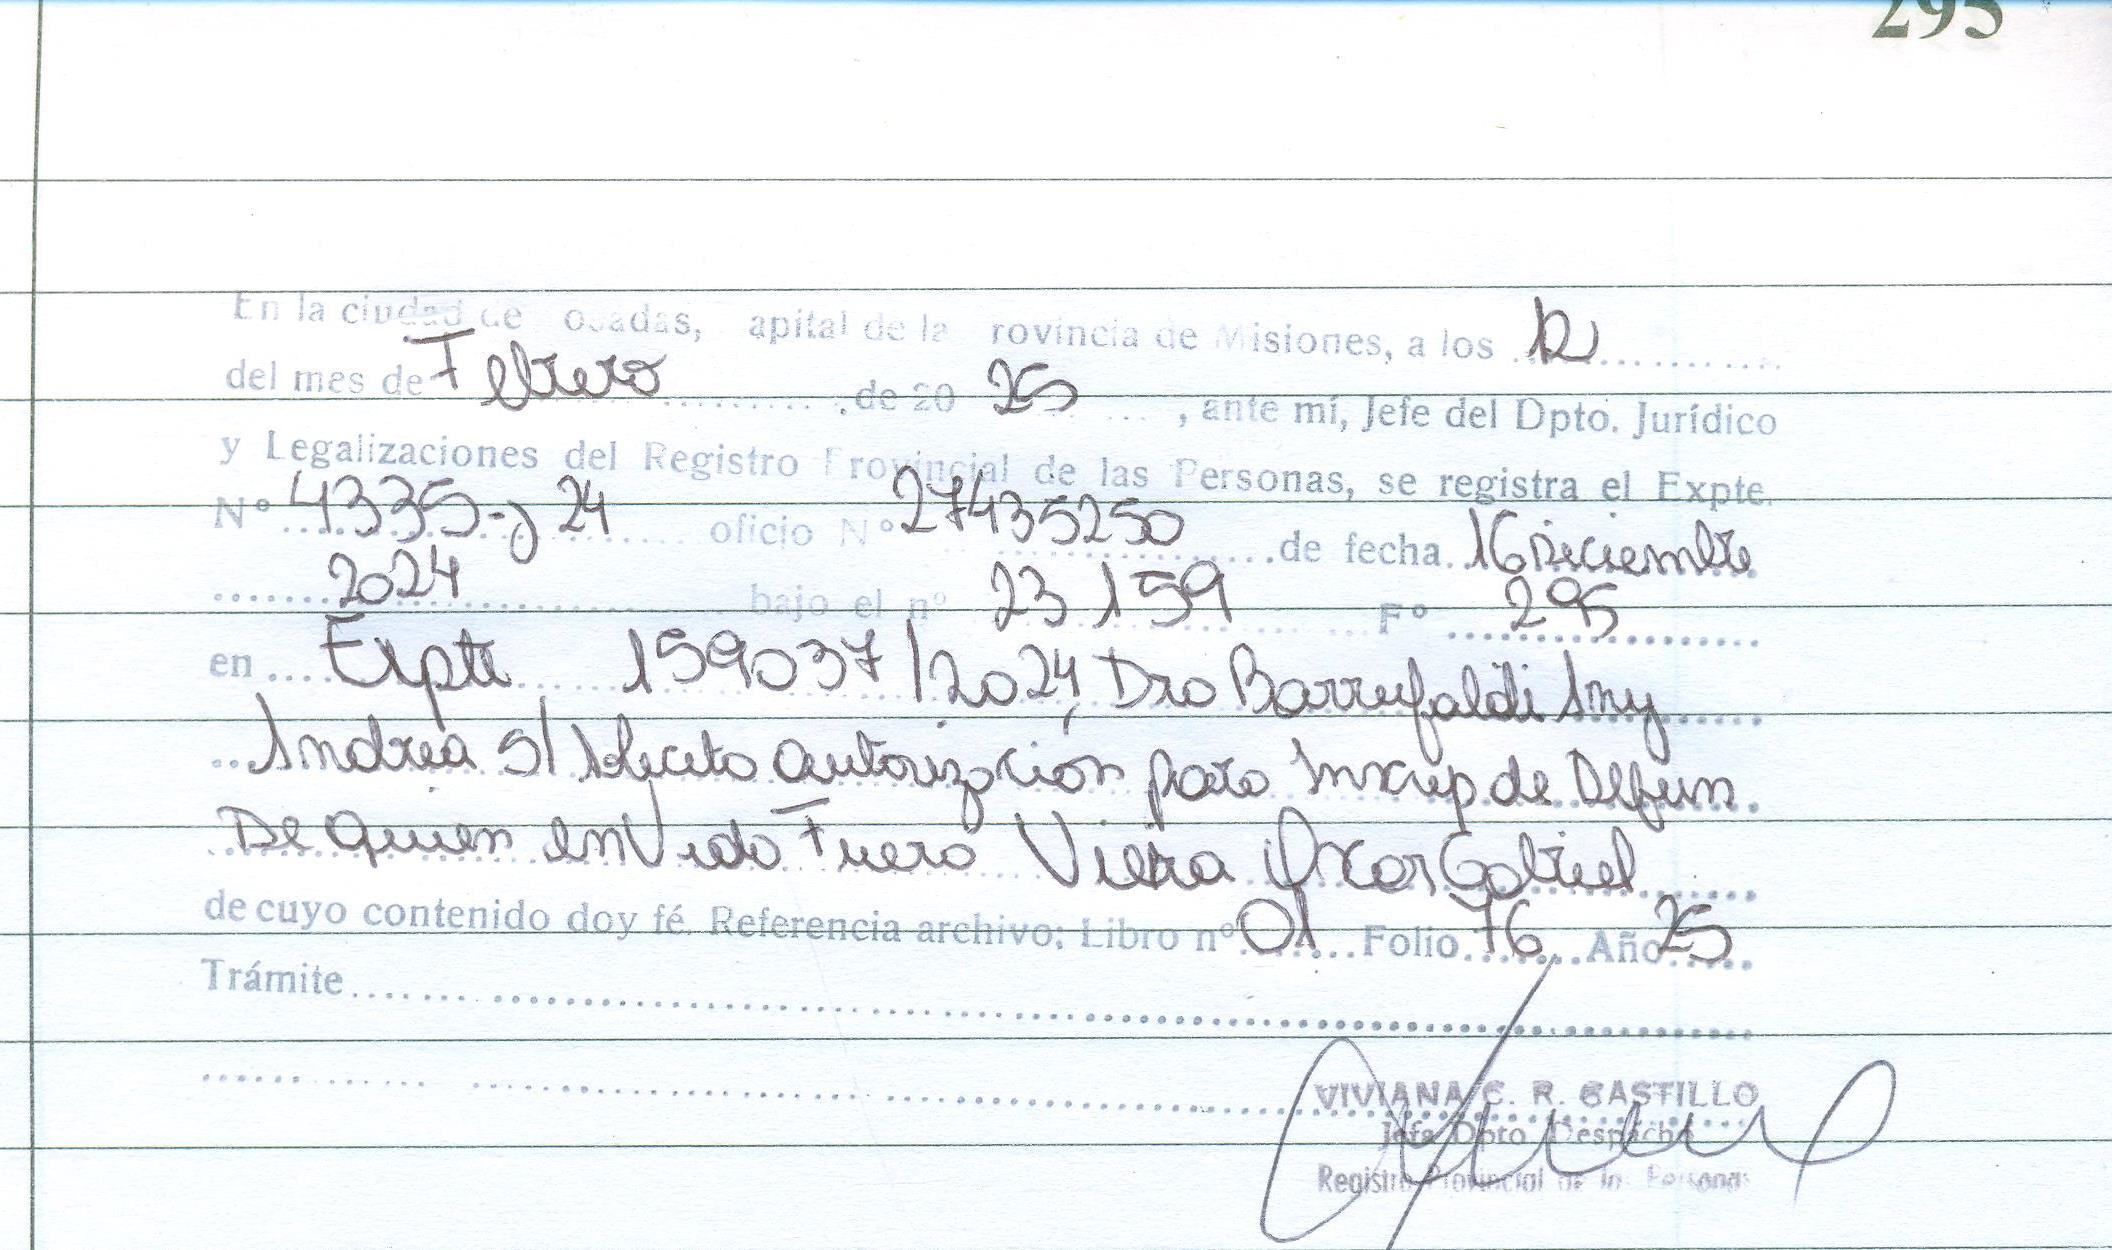 295
En la ciudad de osadas, apital de la rovincia de Misiones, a los 12
del mes de Febrero de 20 25, ante mí, Jefe del Dpto. Jurídico
y Legalizaciones del Registro Provincial de las Personas, se registra el Expte.
Nº 4335-J 24 oficio Nº 27435250 de fecha 16 Diciembre
2024 bajo el nº 23 159 Fº 295
en Expte 159037/2024, Dra Barrufaldi Any
Andrea S/ Solicita autorización para Inscrip de Defun
De quien en Vida Fuera Vieira Oscar Gabriel
de cuyo contenido doy fé. Referencia archivo; Libro nº 01 Folio 76 Año 25
Trámite
VIVIANA C. R. CASTILLO
Jefa Dpto Despacho
Registro Provincial de las Personas